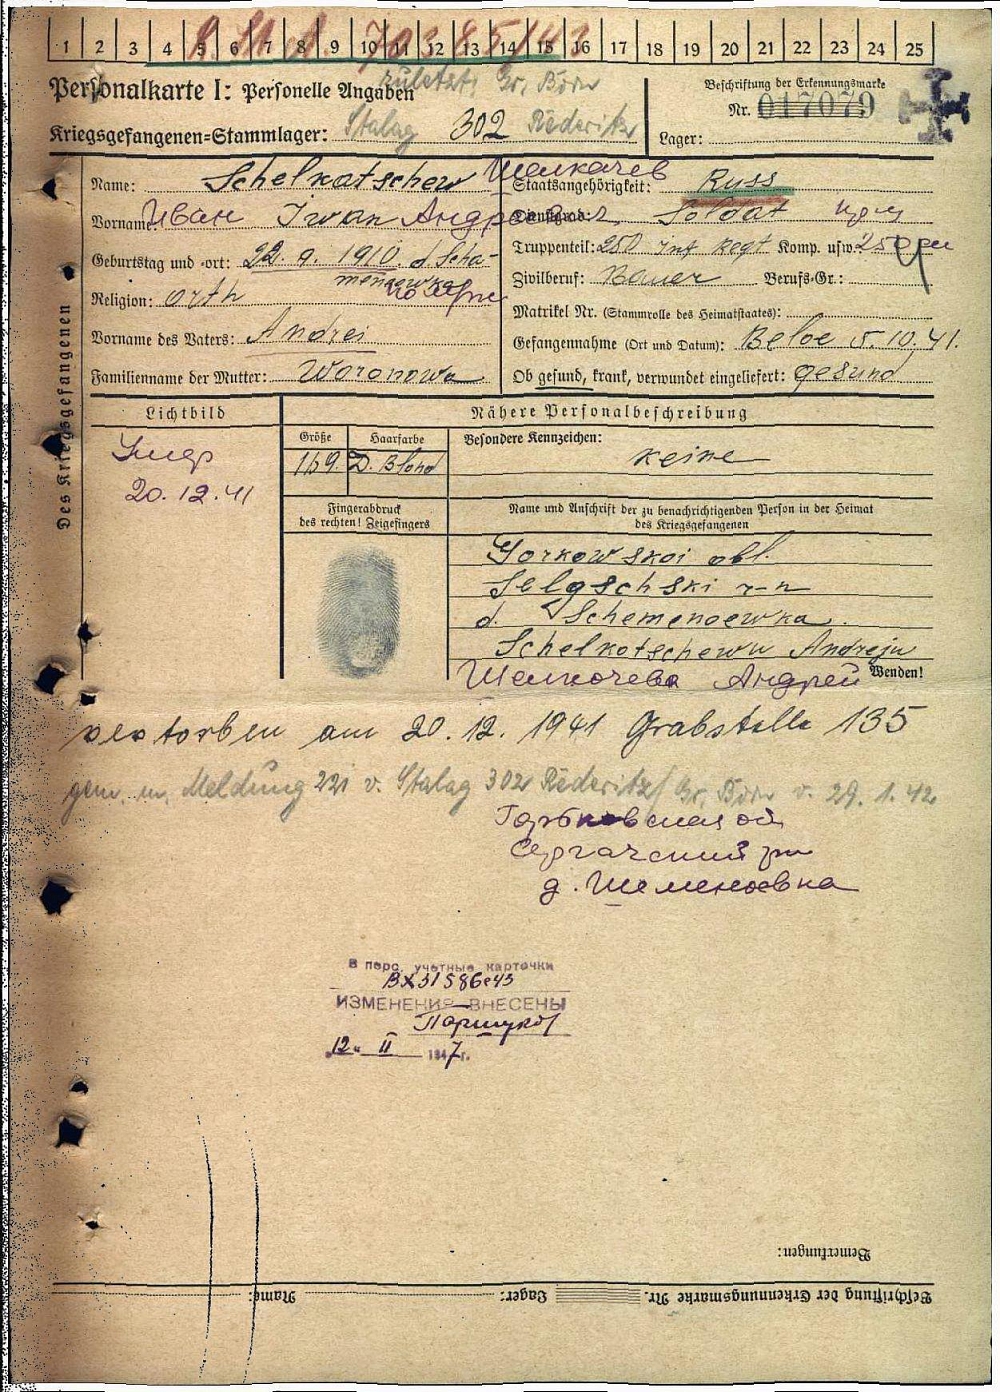 1 2 3 4 5 6 7 8 9 10 11 12 13 14 15 16 17 18 19 20 21 22 23 24 25
zuletzt Gr. Born
Personalkarte I: Personelle Angaben
Kriegsgefangenen=Stammlager: Stalag 302 Rederitz
Beschriftung der Erkennungsmarke
Nr. 017079
Lager:
Des Kriegsgefangenen
Name: Schelkatschew Шелкачев
Vorname: Иван Iwan
Geburtstag und =ort: 22. 9. 1910. d. Scha-
menaewka
Religion: Orth
Vorname des Vaters: Andrei
Familienname der Mutter: Woronowa
Staatsangehörigkeit: Russ
Dienstgrad: Soldat
Truppenteil: 250 Inf Regt Komp. usw.: 250
Zivilberuf: Bauer Berufs-Gr.:
Matrikel Nr. (Stammrolle des Heimatstaates):
Gefangennahme (Ort und Datum): Beloe 5.10.41.
Ob gesund, krank, verwundet eingeliefert: gesund
Lichtbild
Умер
20.12.41
Nähere Personalbeschreibung
Größe Haarfarbe Besondere Kennzeichen:
169. D. Blond keine
Fingerabdruck
des rechten! Zeigefingers
Name und Anschrift der zu benachrichtigenden Person in der Heimat
des Kriegsgefangenen
Gorkowskoi obl.
Selgschski r-n
d. Schemenaewka.
Schelkotschewu Andreju
Шелкочева Андрей
Wenden!
verstorben am 20.12.1941 Grabstelle 135
gem. m. Meldung 221 v. Stalag 302 Rederitz/Gr. Born v. 29.1.42
Горьковская об
Сергачский рн
д. Шеменаевка
В перс. учетные карточки
ВХ31586с43
ИЗМЕНЕНИЯ ВНЕСЕНЫ
Паршуков
"12" II 1947 г.
Bemerkungen:
Beschriftung der Erkennungsmarke Nr. Lager: Name: